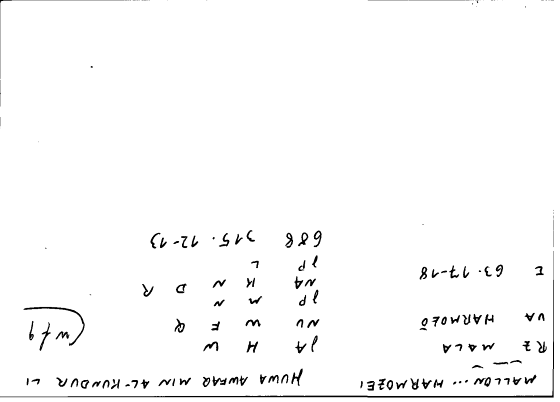 MALLON ... HARMOZEI HUWA AWFAQ MIN AL-KUNDUR LI
RZ MALA JA H W
VA HARMOZŌ NU W F Q (wfq
JP M N
I 63.17-18 NA K N D R
JP L
688 315.12-13